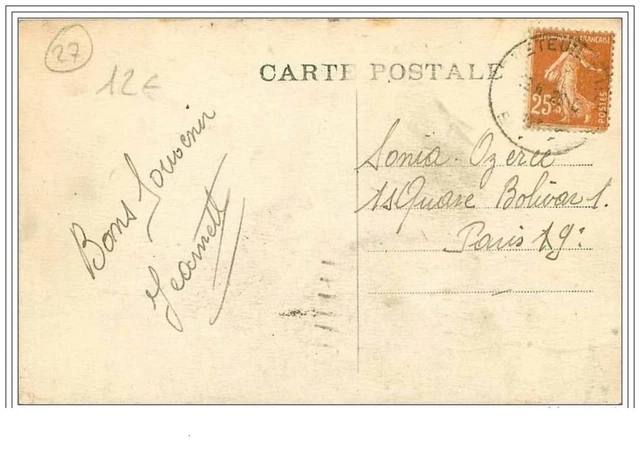 27
12€
CARTE POSTALE
FRANÇAISE
25c
POSTES
Bons Souvenir
Jeannett
Sonia Ozerié
1 Square Bolivar 1.
Paris 19e